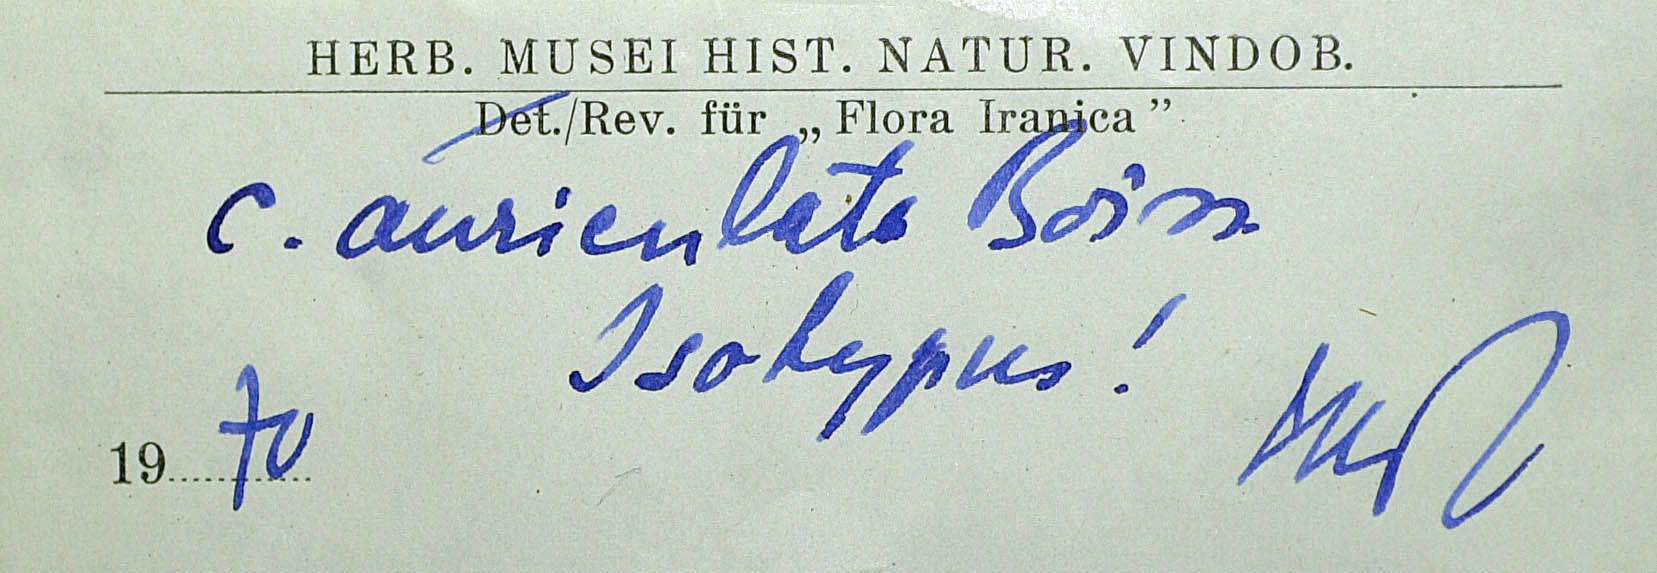 HERB. MUSEI HIST. NATUR. VINDOB.
Det./Rev. für „Flora Iranica”
C. auriculata Boiss
Isotypus!
1970